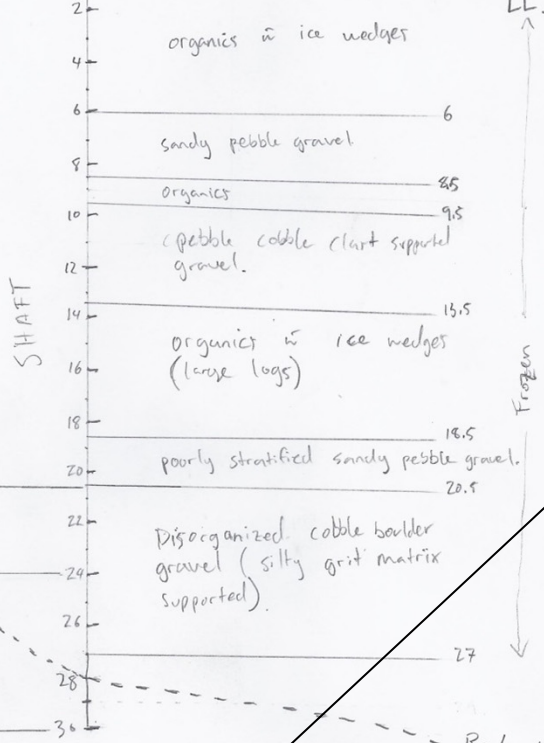 2
organics w̄ ice wedges
4
6
6
sandy pebble gravel
8
8.5
organics
9.5
10
pebble cobble clast supported
gravel.
12
13.5
14
SHAFT
organics w̄ ice wedges
(large logs)
16
Frozen
18
18.5
poorly stratified sandy pebble gravel.
20
20.5
22
Disorganized cobble boulder
gravel (silty grit matrix
supported).
24
26
27
28
30